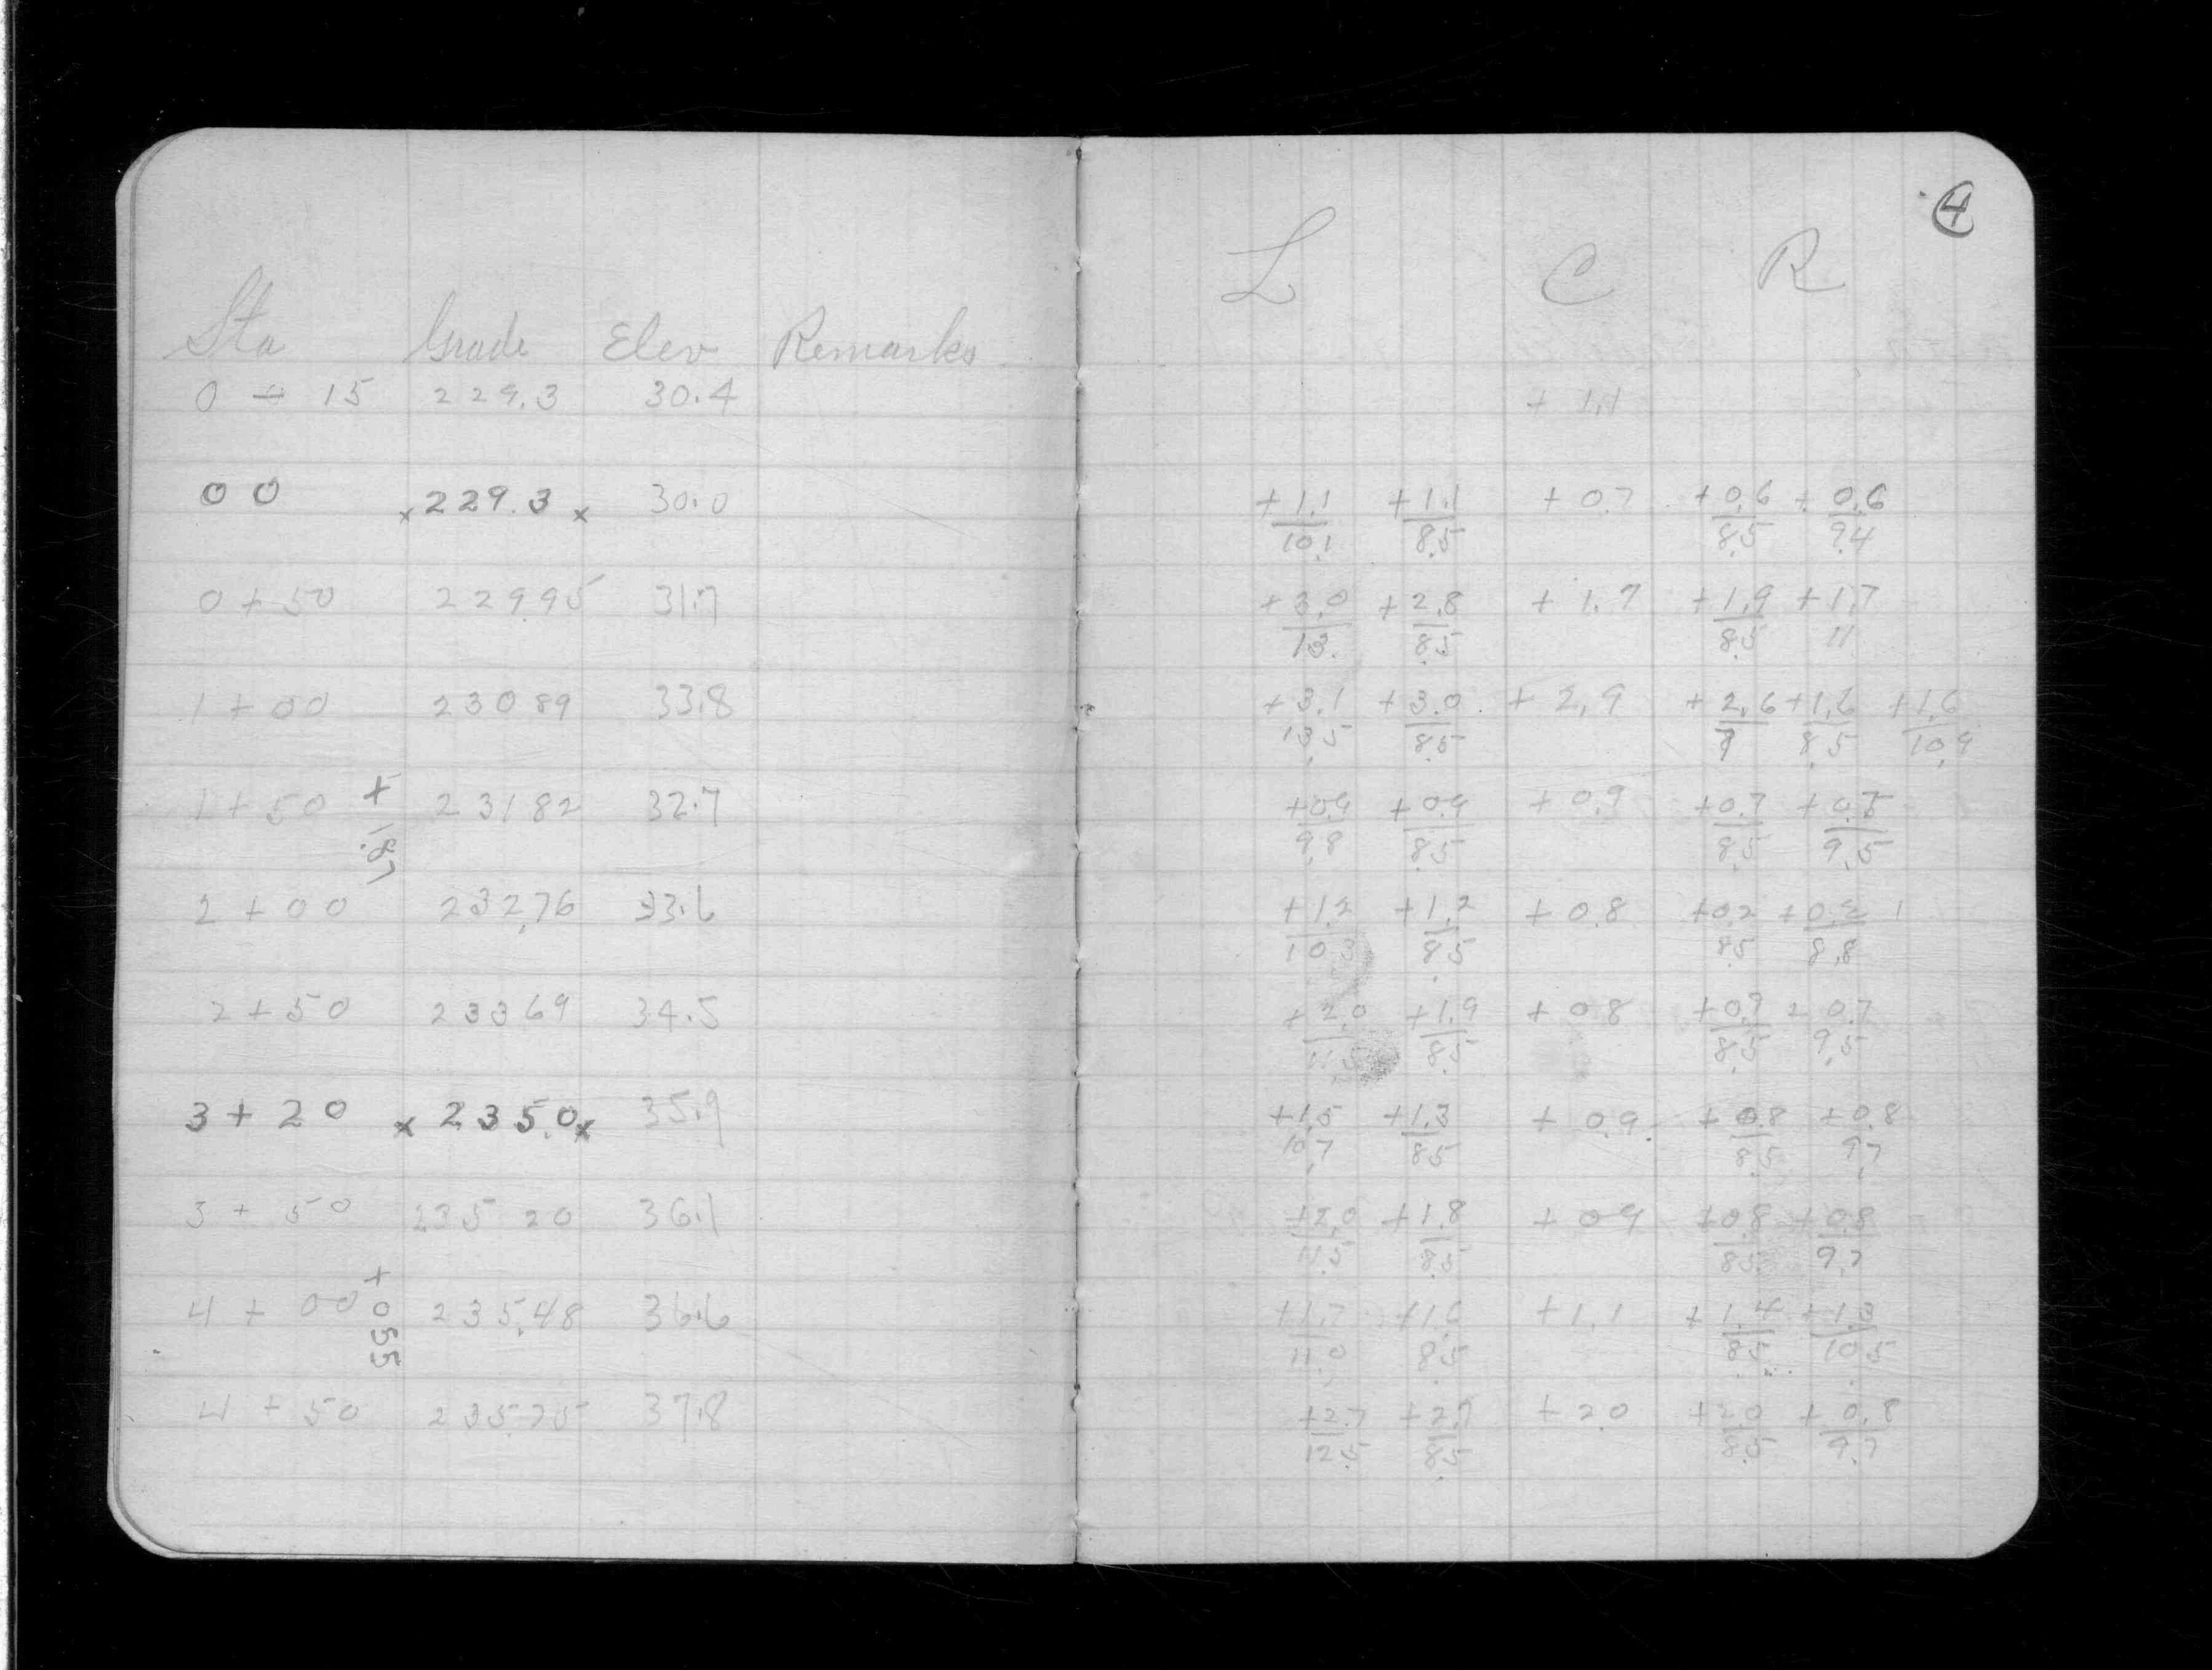 4
L C R
Sta Grade Elev Remarks
0 + 15 229.3 30.4 + 1.1
00 x 229.3 x 30.0 +1.1 +1.1 +0.7 +0.6 + 0.6
10.1 8.5 8.5 9.4
0 + 50 229.95 31.7 +3.0 +2.8 +1.7 +1.9 +1.7
13. 8.5 8.5 11
1 + 00 230 89 33.8 +3.1 +3.0 +2.9 +2.6 +1.6 +1.6
13.5 8.5 8.5 10.9
1 + 50 231 82 32.7 +0.9 +0.9 +0.9 +0.7 +0.7
9.8 8.5 8.5 9.5
+ 1.87
2 + 00 232.76 33.6 +1.2 +1.2 +0.8 +0.2 +0.2
10.3 8.5 8.5 8.8
2 + 50 233 69 34.5 +2.0 +1.9 +0.8 +0.7 + 0.7
11.5 8.5 8.5 9.5
3 + 20 x 235.0 x 35.9 +1.5 +1.3 +0.9 +0.8 +0.8
10.7 8.5 8.5 9.7
3 + 50 235 20 36.1 +2.0 +1.8 +0.9 +0.8 +0.8
11.5 8.5 8.5 9.7
4 + 00 235.48 36.6 +1.7 +1.6 +1.1 +1.4 +1.3
11.0 8.5 8.5 10.5
+ 0 55
4 + 50 235.75 37.8 +2.7 +2.7 +2.0 +2.0 +0.8
12.5 8.5 8.5 9.7